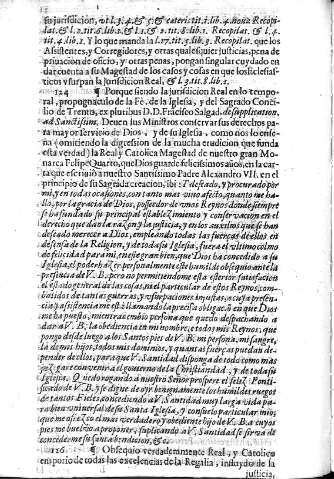 su jurisdicion, ut l. 3. 4. & 5. & cæteris tit. 1. lib. 4. novæ Recopi-
lat. & l. 2. tit. 6. lib. 2. & l. 2. tit. 8. lib. 1. Recopilat. & l. 4.
tit. 4. lib. 1. Y lo que manda la l. 17. tit. 5. lib. 3. Recopilat. que los
Asistentes, y Corregidores, y otras qualesquier justicias, pena de
privacion de oficio, y otras penas, pongan singular cuydado en
dar cuenta a su Magestad de los casos y cosas en que los Eclesias-
ticos vsurpan la jurisdicion Real, & l. lib. 4.
124 ¶ Porque siendo la jurisdicion Real en lo tempo-
ral, propugnaculo de la Fè, de la Iglesia, y del Sagrado Conci-
lio de Trento, ex pluribus D. D. Francisco Salgad. de supplication.
ad Sanctissim. Deuen sus Ministros conservar sus derechos pa-
ra mayor servicio de Dios, y de su Iglesia, como nos lo ense-
ña (omitiendo la digression de la mucha erudicion que funda
esta verdad) la Real y Catolica Magestad de nuestro gran Mo-
narca Felipe Quarto, que Dios guarde felicissimos años, en la car-
ta que escriuiò a nuestro Santissimo Padre Alexandro VII. en el
principio de su Sagrada creacion, ibi: Y deseado, y procurado por
mi, y en todas ocasiones, con tanto mas vivo afecto, quanto me ha-
llo, por la gracia de Dios, posseedor de vnos Reynos donde siempre
se ha fundado su principal establecimiento y conservacion en el
derecho que dan la razon y la justicia, y en los auxilios que se han
deseado merecer a Dios, empleando todas las fuerças de ellos en
defensa de la Religion, y de toda su Iglesia, fuera el vltimo colmo
de felicidad para mi, en esse gran bien, que Dios ha concedido a su
Iglesia, el poder hazer personalmente este humilde obsequio ante la
presencia de V. B. pero no permitiendome esta exterior satisfacion
el estado general de las cosas, ni el particular de estos Reynos, com-
batidos de tantas guerras, y vsurpaciones injustas, a cuya presen-
cia y assistencia me està llamando la precisa obligacion en que Dios
me ha puesto, mientras cambio persona que quede despachando a
dar a V. B. la obediencia en mi nombre, en todos mis Reynos; que
pongo desde luego a los Santos pies de V. B. mi persona, mi sangre,
la de mis hijos, todos mis dominios, y quantas fuerças puedan de-
pender de ellos, para que V. Santidad disponga de todo como mas
juzgare convenir a el govierno de la Christiandad, y de toda su
Iglesia. Quedo rogando a nuestro Señor prospere el feliz Ponti-
ficado de V. B. y se digne de oir benignamente los humildes ruegos
de tantos Fieles, concediendo a V. Santidad muy larga vida pa-
ra bien vniversal de su Santa Iglesia, y consuelo particular mio,
que me ofrezco el mas verdadero y obediente hijo de V. B. a cuyos
pies me buelvo a proponer, suplicando a V. Santidad se sirva de
concederme su santa bendicion, &c.
126 ¶ Obsequio verdaderamente Real, y Catolico
emporio de todas las excelencias de la Regalia, influxo de la
justicia,